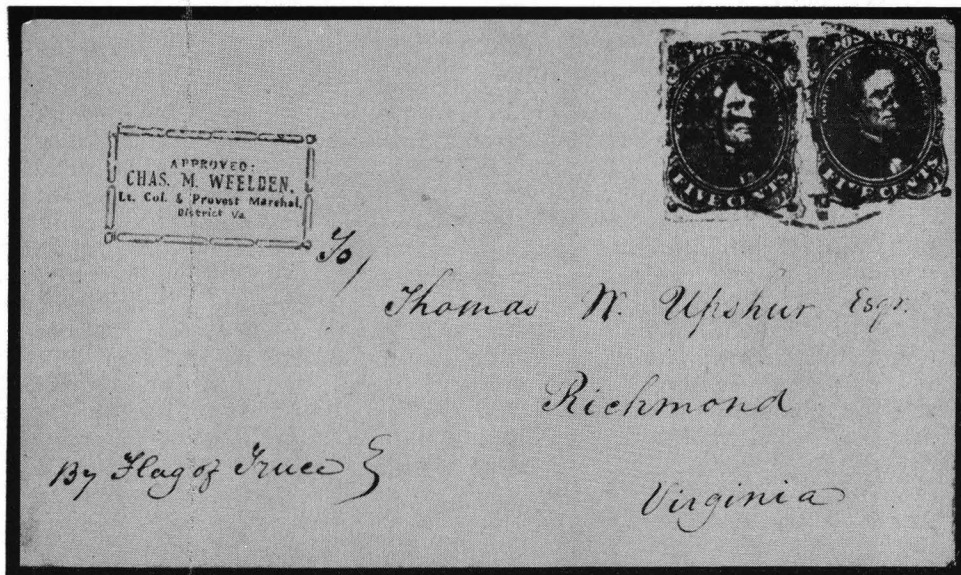 POSTAGE
FIVE CENTS
POSTAGE
FIVE CENTS
APPROVED:
CHAS. M. WEELDEN.
Lt. Col. & Provost Marshal,
District Va
To,
Thomas W. Upshur Esqr.
Richmond
By Flag of Truce
Virginia